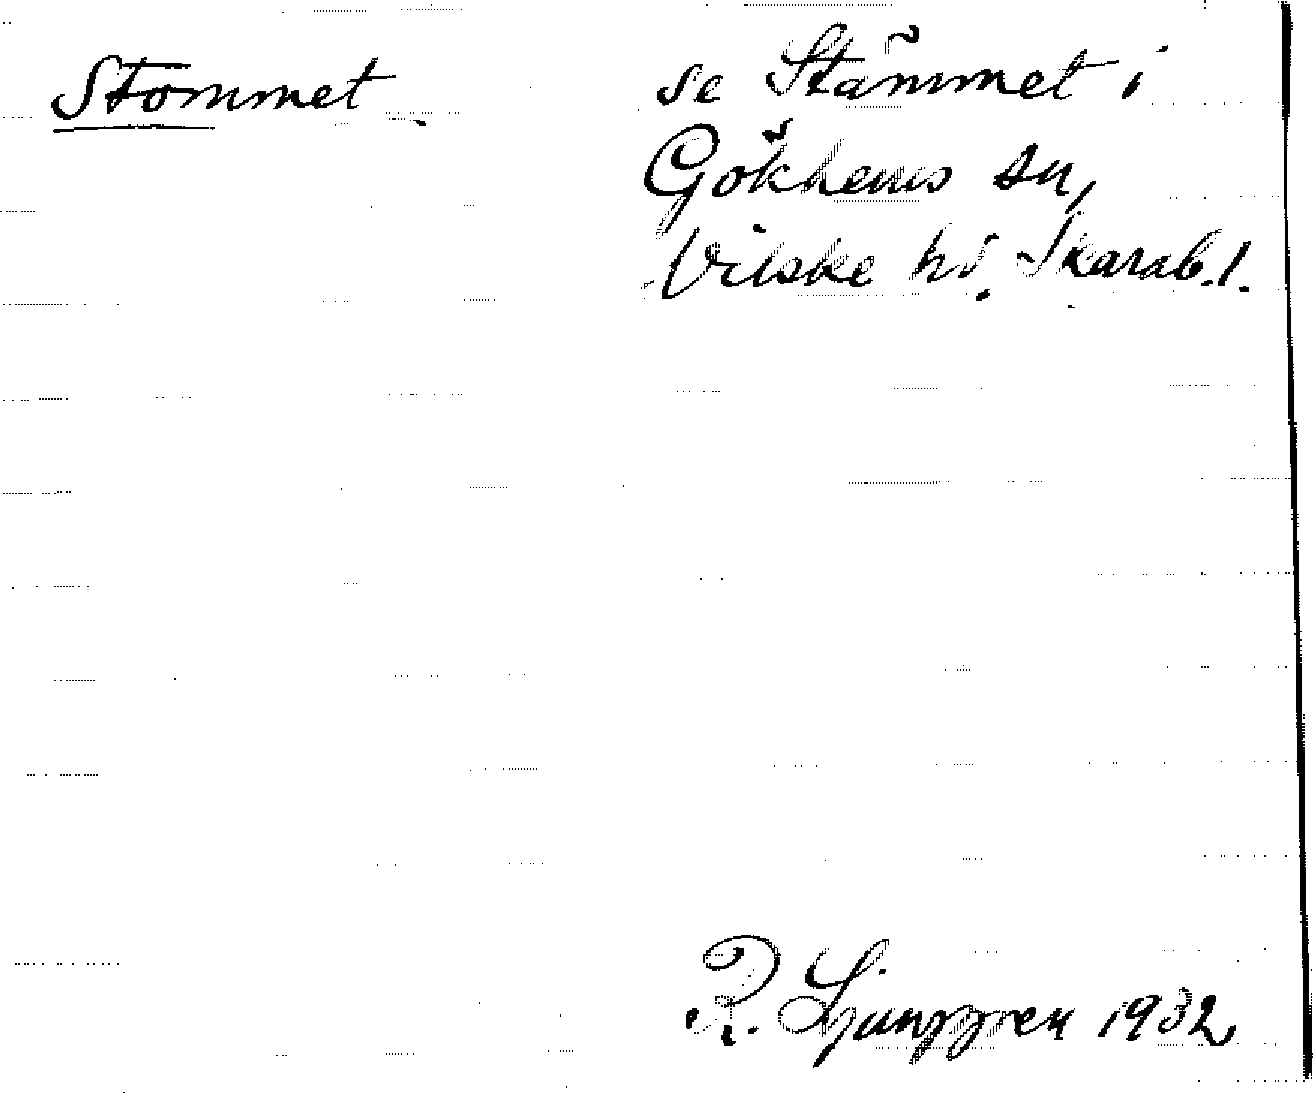 Stommet se Stämmet i
Gökhems sn,
Vilske hd. Skarab. l.
R. Ljunggren 1932